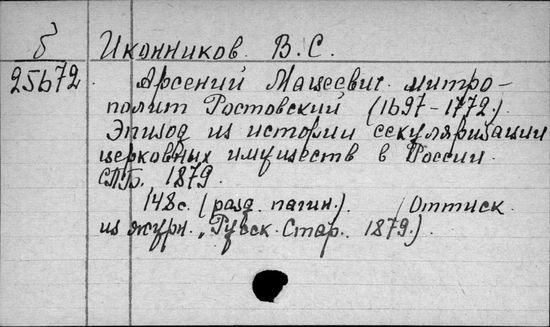 б Иконников В. С.
25672 Арсений Мацеевич митро-
полит Ростовский (1697-1772.)
Эпизод из истории секуляризации
церковных имуществ в России.
СПБ, 1879.
148с. (разд. пагин.) (Оттиск
из журн. „Русск. Стар. 1879.)